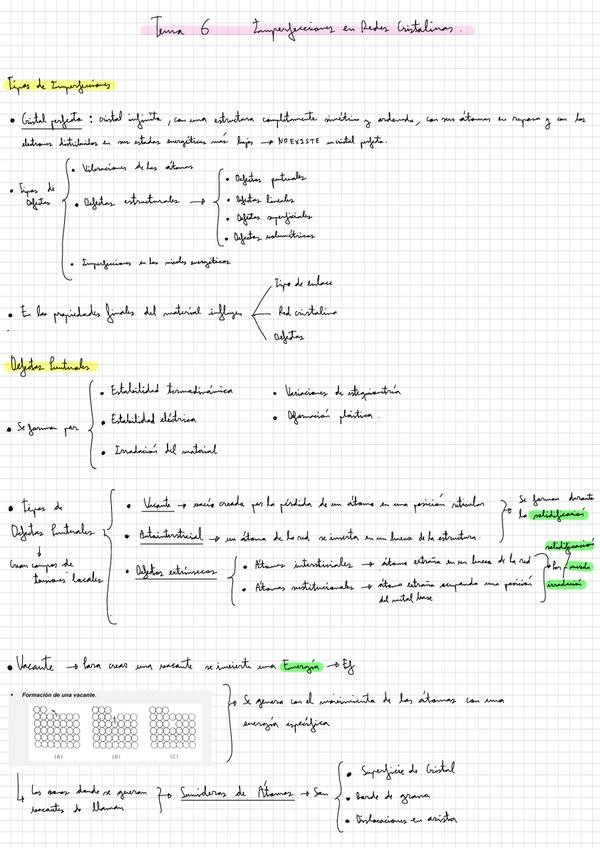 Tema 6 Imperfecciones en Redes Cristalinas.
Tipos de Imperfecciones
• Cristal perfecto : cristal infinito, con una estructura completamente simétrica y ordenada, con sus átomos en reposo y con los
eletrones distribuidos en sus estados energéticos más bajos → NO EXISTE un cristal perfecto.
• Tipos de
Defectos
• Vibraciones de los átomos
• Defectos estructurales →
• Defectos puntuales
• Defectos lineales
• Defectos superficiales
• Defectos volumétricos
• Imperfecciones en los niveles energéticos
• En las propiedades finales del material influyen
Tipo de enlace
Red cristalina
Defectos
Defectos Puntuales
• Se forman por
• Estabilidad termodinámica
• Estabilidad eléctrica
• Irradiación del material
• Variaciones de estequiometría
• Deformación plástica.
• Tipos de
Defectos Puntuales
↓
Gran campos de
tensiones locales
• Vacante → vacío creada por la pérdida de un átomo en una posición reticular
• Autointersticial → un átomo de la red se inserta en un hueco de la estructura.
Se forman durante
la solidificación
• Defectos extrínsecos
• Átomos intersticiales → átomo extraño en un hueco de la red
• Átomos sustitucionales → átomo extraño ocupando una posición
del metal base
solidificación
Por mezcla
irradiación
• Vacante → Para crear una vacante se invierte una Energía → Ef
• Formación de una vacante.
(A) (B) (C)
→ Se genera con el movimiento de los átomos con una
energía específica
Las zonas donde se generan
vacantes se llaman
→ Sumideros de Átomos → Son
• Superficie de Cristal
• Borde de grano
• Dislocaciones en arista